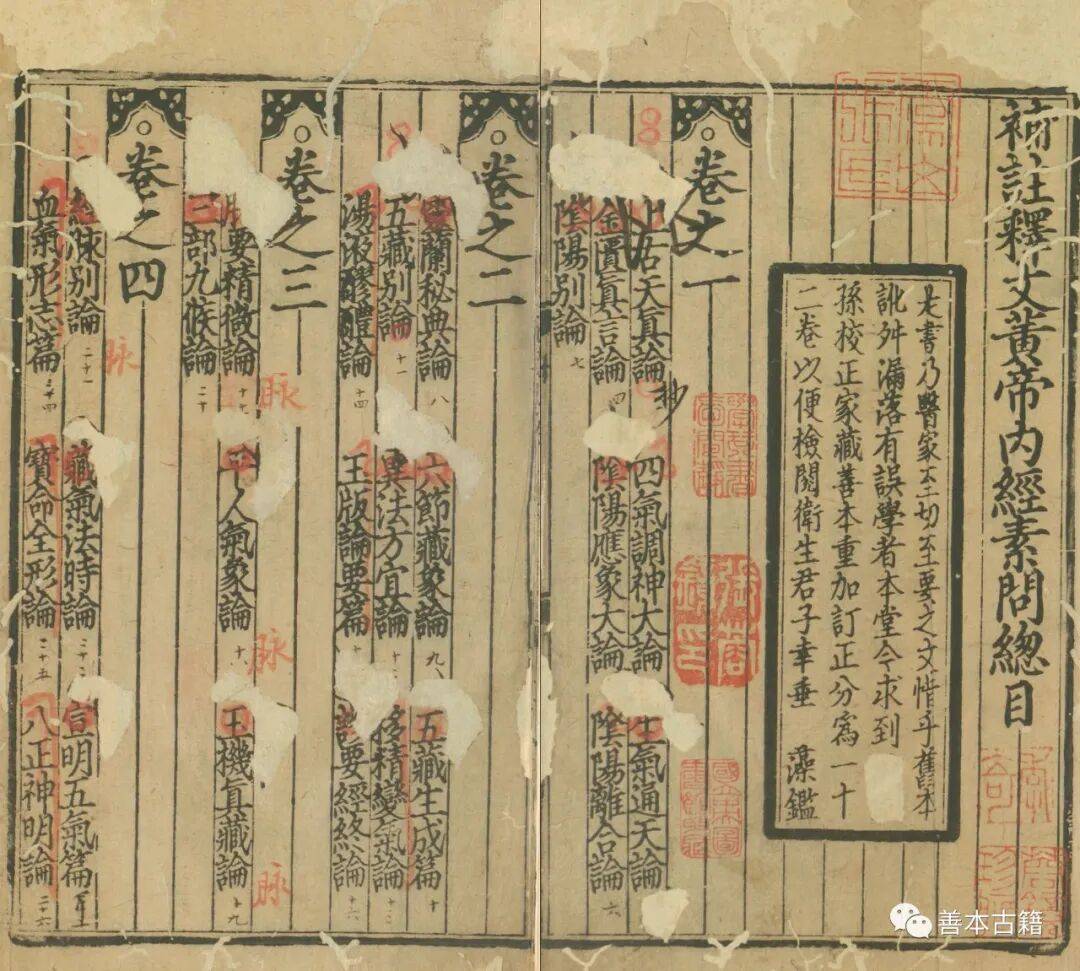 補註釋文黃帝內經素問總目
是書乃醫家至切至要之文惜乎舊本
訛舛漏落有誤學者本堂今求到
孫校正家藏善本重加訂正分為一十
二卷以便檢閱衛生君子幸垂 藻鑑
卷之一
上古天真論 四氣調神大論 生氣通天論
抄
金匱真言論 四 陰陽應象大論 陰陽離合論 六
陰陽別論 七
卷之二
靈蘭秘典論 八 六節藏象論 九 五藏生成篇 十
五藏別論 十一 異法方宜論 移精變氣論 十三
湯液醪醴論 十四 玉版論要篇 診要經終論 十六
卷之三
脉
脉
脉
脉要精微論 十七 平人氣象論 十八 玉機真藏論 十九
三部九候論 二十
卷之四
脉
經脉別論 二十一 藏氣法時論 宣明五氣篇
血氣形志篇 二十四 寶命全形論 二十五 八正神明論 二十六
善本古籍